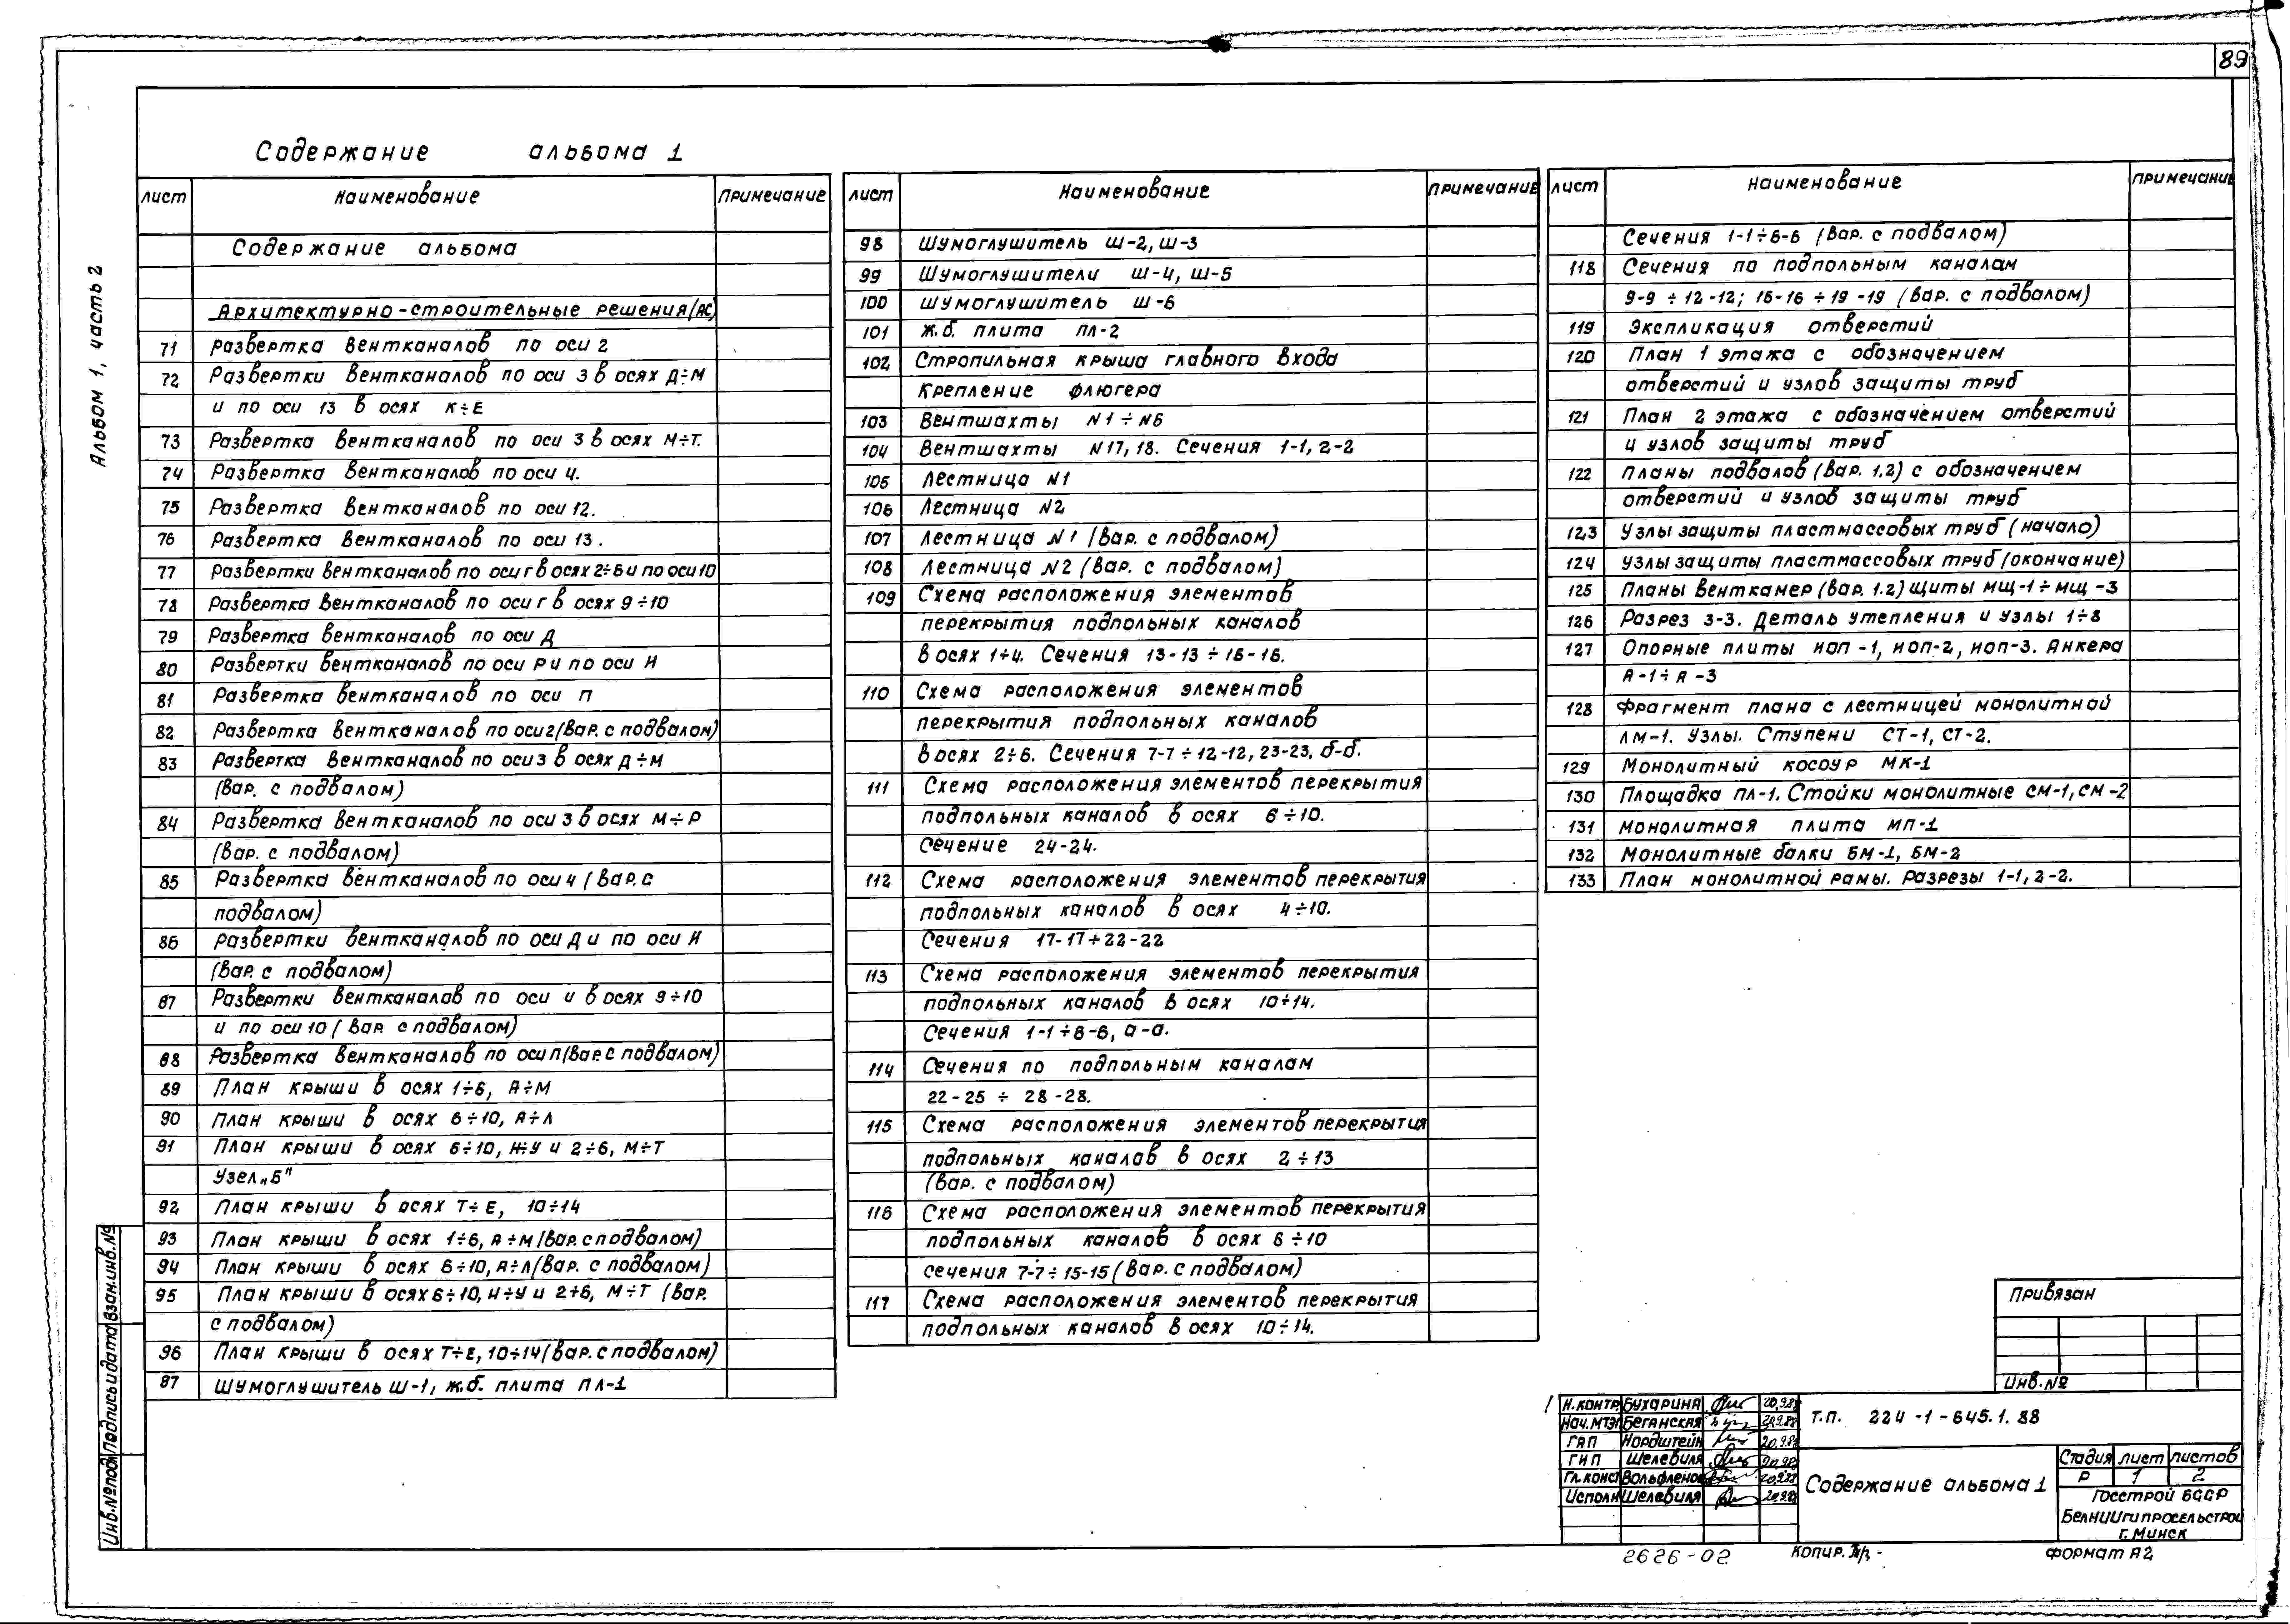 89
Альбом 1, часть 2
Содержание альбома 1
лист Наименование примечание
Содержание альбома
Архитектурно-строительные решения (АС)
71 Развертка вентканалов по оси 2
72 Развертки вентканалов по оси 3 в осях Д÷М
и по оси 13 в осях К÷Е
73 Развертка вентканалов по оси 3 в осях М÷Т.
74 Развертка вентканалов по оси 4.
75 Развертка вентканалов по оси 12.
76 Развертка вентканалов по оси 13.
77 Развертки вентканалов по оси Г в осях 2÷6 и по оси 10
78 Развертка вентканалов по оси Г в осях 9÷10
79 Развертка вентканалов по оси Д
80 Развертки вентканалов по оси Р и по оси И
81 Развертка вентканалов по оси П
82 Развертка вентканалов по оси 2 (вар. с подвалом)
83 Развертка вентканалов по оси 3 в осях Д÷М
(вар. с подвалом)
84 Развертка вентканалов по оси 3 в осях М÷Р
(вар. с подвалом)
85 Развертка вентканалов по оси 4 (вар. с
подвалом)
86 Развертки вентканалов по оси Д и по оси И
(вар. с подвалом)
87 Развертки вентканалов по оси И в осях 9÷10
и по оси 10 (вар. с подвалом)
88 Развертка вентканалов по оси П (вар. с подвалом)
89 План крыши в осях 1÷6, А÷М
90 План крыши в осях 6÷10, А÷Л
91 План крыши в осях 6÷10, И÷У и 2÷6, М÷Т
Узел „Б"
92 План крыши в осях Т÷Е, 10÷14
93 План крыши в осях 1÷6, А÷М (вар. с подвалом)
94 План крыши в осях 6÷10, А÷Л (вар. с подвалом)
95 План крыши в осях 6÷10, И÷У и 2÷6, М÷Т (вар.
с подвалом)
96 План крыши в осях Т÷Е, 10÷14 (вар. с подвалом)
87 Шумоглушитель Ш-1, ж.б. плита ПЛ-1
лист Наименование примечание
98 Шумоглушитель Ш-2, Ш-3
99 Шумоглушители Ш-4, Ш-5
100 Шумоглушитель Ш-6
101 Ж.б. плита ПЛ-2
102 Стропильная крыша главного входа
Крепление флюгера
103 Вентшахты N1÷N6
104 Вентшахты N17, 18. Сечения 1-1, 2-2
105 Лестница N1
106 Лестница N2
107 Лестница N1 (вар. с подвалом)
108 Лестница N2 (вар. с подвалом)
109 Схема расположения элементов
перекрытия подпольных каналов
в осях 1÷4. Сечения 13-13÷16-16.
110 Схема расположения элементов
перекрытия подпольных каналов
в осях 2÷6. Сечения 7-7÷12-12, 23-23, б-б.
111 Схема расположения элементов перекрытия
подпольных каналов в осях 6÷10.
Сечение 24-24.
112 Схема расположения элементов перекрытия
подпольных каналов в осях 4÷10.
Сечения 17-17÷22-22
113 Схема расположения элементов перекрытия
подпольных каналов в осях 10÷14.
Сечения 1-1÷6-6, а-а.
114 Сечения по подпольным каналам
22-25 ÷ 28-28.
115 Схема расположения элементов перекрытия
подпольных каналов в осях 2÷13
(вар. с подвалом)
116 Схема расположения элементов перекрытия
подпольных каналов в осях 6÷10
сечения 7-7÷15-15 (вар. с подвалом)
117 Схема расположения элементов перекрытия
подпольных каналов в осях 10÷14.
лист Наименование примечание
Сечения 1-1÷6-6 (вар. с подвалом)
118 Сечения по подпольным каналам
9-9 ÷ 12-12; 16-16 ÷ 19-19 (вар. с подвалом)
119 Экспликация отверстий
120 План 1 этажа с обозначением
отверстий и узлов защиты труб
121 План 2 этажа с обозначением отверстий
и узлов защиты труб
122 Планы подвалов (вар. 1,2) с обозначением
отверстий и узлов защиты труб
123 Узлы защиты пластмассовых труб (начало)
124 Узлы защиты пластмассовых труб (окончание)
125 Планы венткамер (вар. 1.2) Щиты МЩ-1÷МЩ-3
126 Разрез 3-3. Деталь утепления и узлы 1÷8
127 Опорные плиты ИОП-1, ИОП-2, ИОП-3. Анкера
А-1÷А-3
128 Фрагмент плана с лестницей монолитной
ЛМ-1. Узлы. Ступени СТ-1, СТ-2.
129 Монолитный косоур МК-1
130 Площадка ПЛ-1. Стойки монолитные СМ-1, СМ-2
131 Монолитная плита МП-1
132 Монолитные балки БМ-1, БМ-2
133 План монолитной рамы. Разрезы 1-1, 2-2.
Привязан
Инв.№
Н.контр Бухарина 20.9.88
Нач.МТЭП Беганская 20.9.88
ГАП Нордштейн 20.9.88
ГИП Шелевиля 20.9.88
Гл.конс Вольфленок 20.9.88
Исполн Шелевиля 20.9.88
Т.П. 224-1-645.1.88
Содержание альбома 1
Стадия лист листов
Р 1 2
Госстрой БССР
БелНИИгипросельстрой
г. Минск
Инв.№подл Подпись и дата Взам.инв.№
2626-02
Копир.
Формат А2